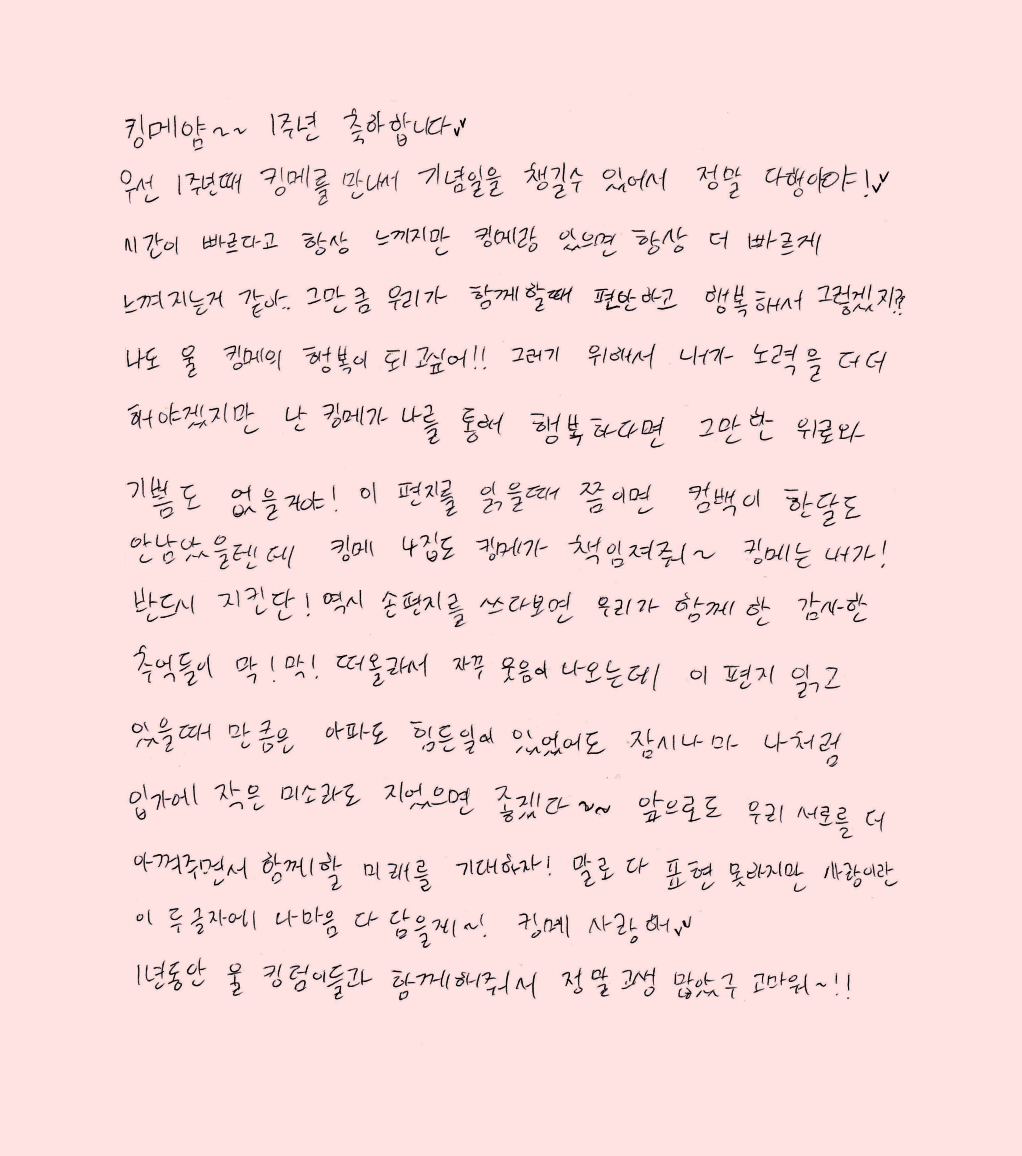 킹메얌~~ 1주년 축하합니다♥
우선 1주년때 킹메를 만나서 기념일을 챙길수 있어서 정말 다행이야!♥
시간이 빠르다고 항상 느끼지만 킹메랑 있으면 항상 더 빠르게
느껴지는거 같아.. 그만큼 우리가 함께할때 편안하고 행복해서 그렇겠지??
나도 울 킹메의 행복이 되고싶어!! 그러기 위해서 내가 노력을 더더
해야겠지만 난 킹메가 나를 통해 행복하다면 그만한 위로와
기쁨도 없을거야! 이 편지를 읽을때 쯤이면 컴백이 한달도
안남았을텐데 킹메 4집도 킹메가 책임져줘~ 킹메는 내가!
반드시 지킨단! 역시 손편지를 쓰다보면 우리가 함께 한 감사한
추억들이 막! 막! 떠올라서 자꾸 웃음이 나오는데 이 편지 읽고
있을때 만큼은 아파도 힘든일이 있었어도 잠시나마 나처럼
입가에 작은 미소라도 지었으면 좋겠다~~ 앞으로도 우리 서로를 더
아껴주면서 함께할 미래를 기대하자! 말로 다 표현 못하지만 사랑이란
이 두글자에 나마음 다 담을게~! 킹메 사랑해♥
1년동안 울 킹덤이들과 함께해줘서 정말 고생 많았구 고마워~!!